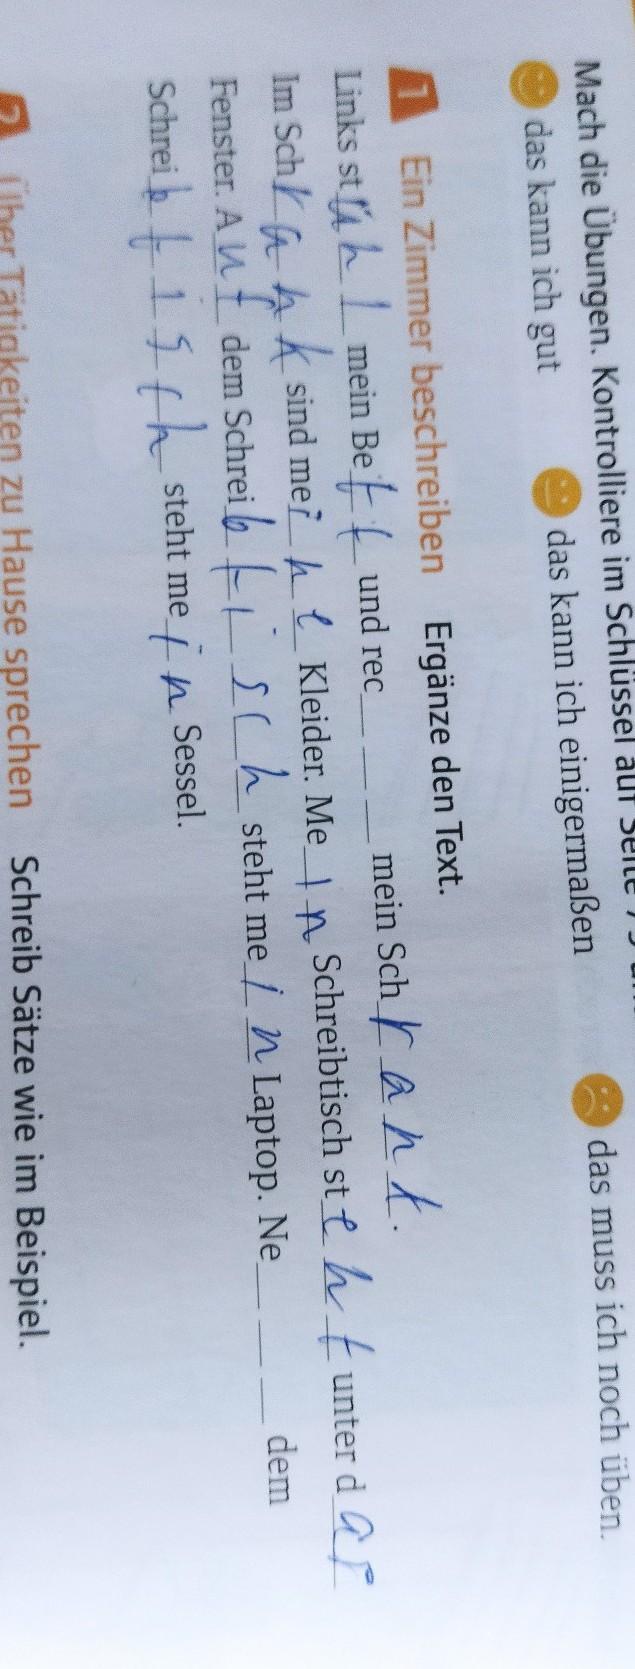 Mach die Übungen. Kontrolliere im Schlüssel auf Seite
das kann ich gut das kann ich einigermaßen das muss ich noch üben.
1 Ein Zimmer beschreiben Ergänze den Text.
Links st mein Bett und rec_ _ _ mein Schrank.
Im Schrank sind meine Kleider. Mein Schreibtisch steht unter d
Fenster. Auf dem Schreibtisch steht mein Laptop. Ne_ _ _ dem
Schreibtisch steht mein Sessel.
2 Über Tätigkeiten zu Hause sprechen Schreib Sätze wie im Beispiel.